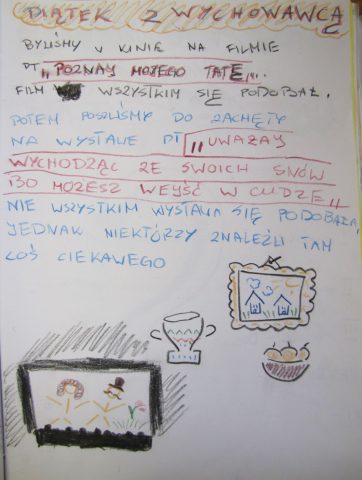 PIĄTEK Z WYCHOWAWCĄ
BYLIŚMY W KINIE NA FILMIE
PT „POZNAJ MOJEGO TATĘ„.
FILM WSZYSTKIM SIĘ PODOBAŁ.
POTEM POSZLIŚMY DO ZACHĘTY
NA WYSTAWĘ PT „UWAŻAJ
WYCHODZĄC ZE SWOICH SNÓW
BO MOŻESZ WEJŚĆ W CUDZE„
NIE WSZYSTKIM WYSTAWA SIĘ PODOBAŁA,
JEDNAK NIEKTÓRZY ZNALEŹLI TAM
COŚ CIEKAWEGO